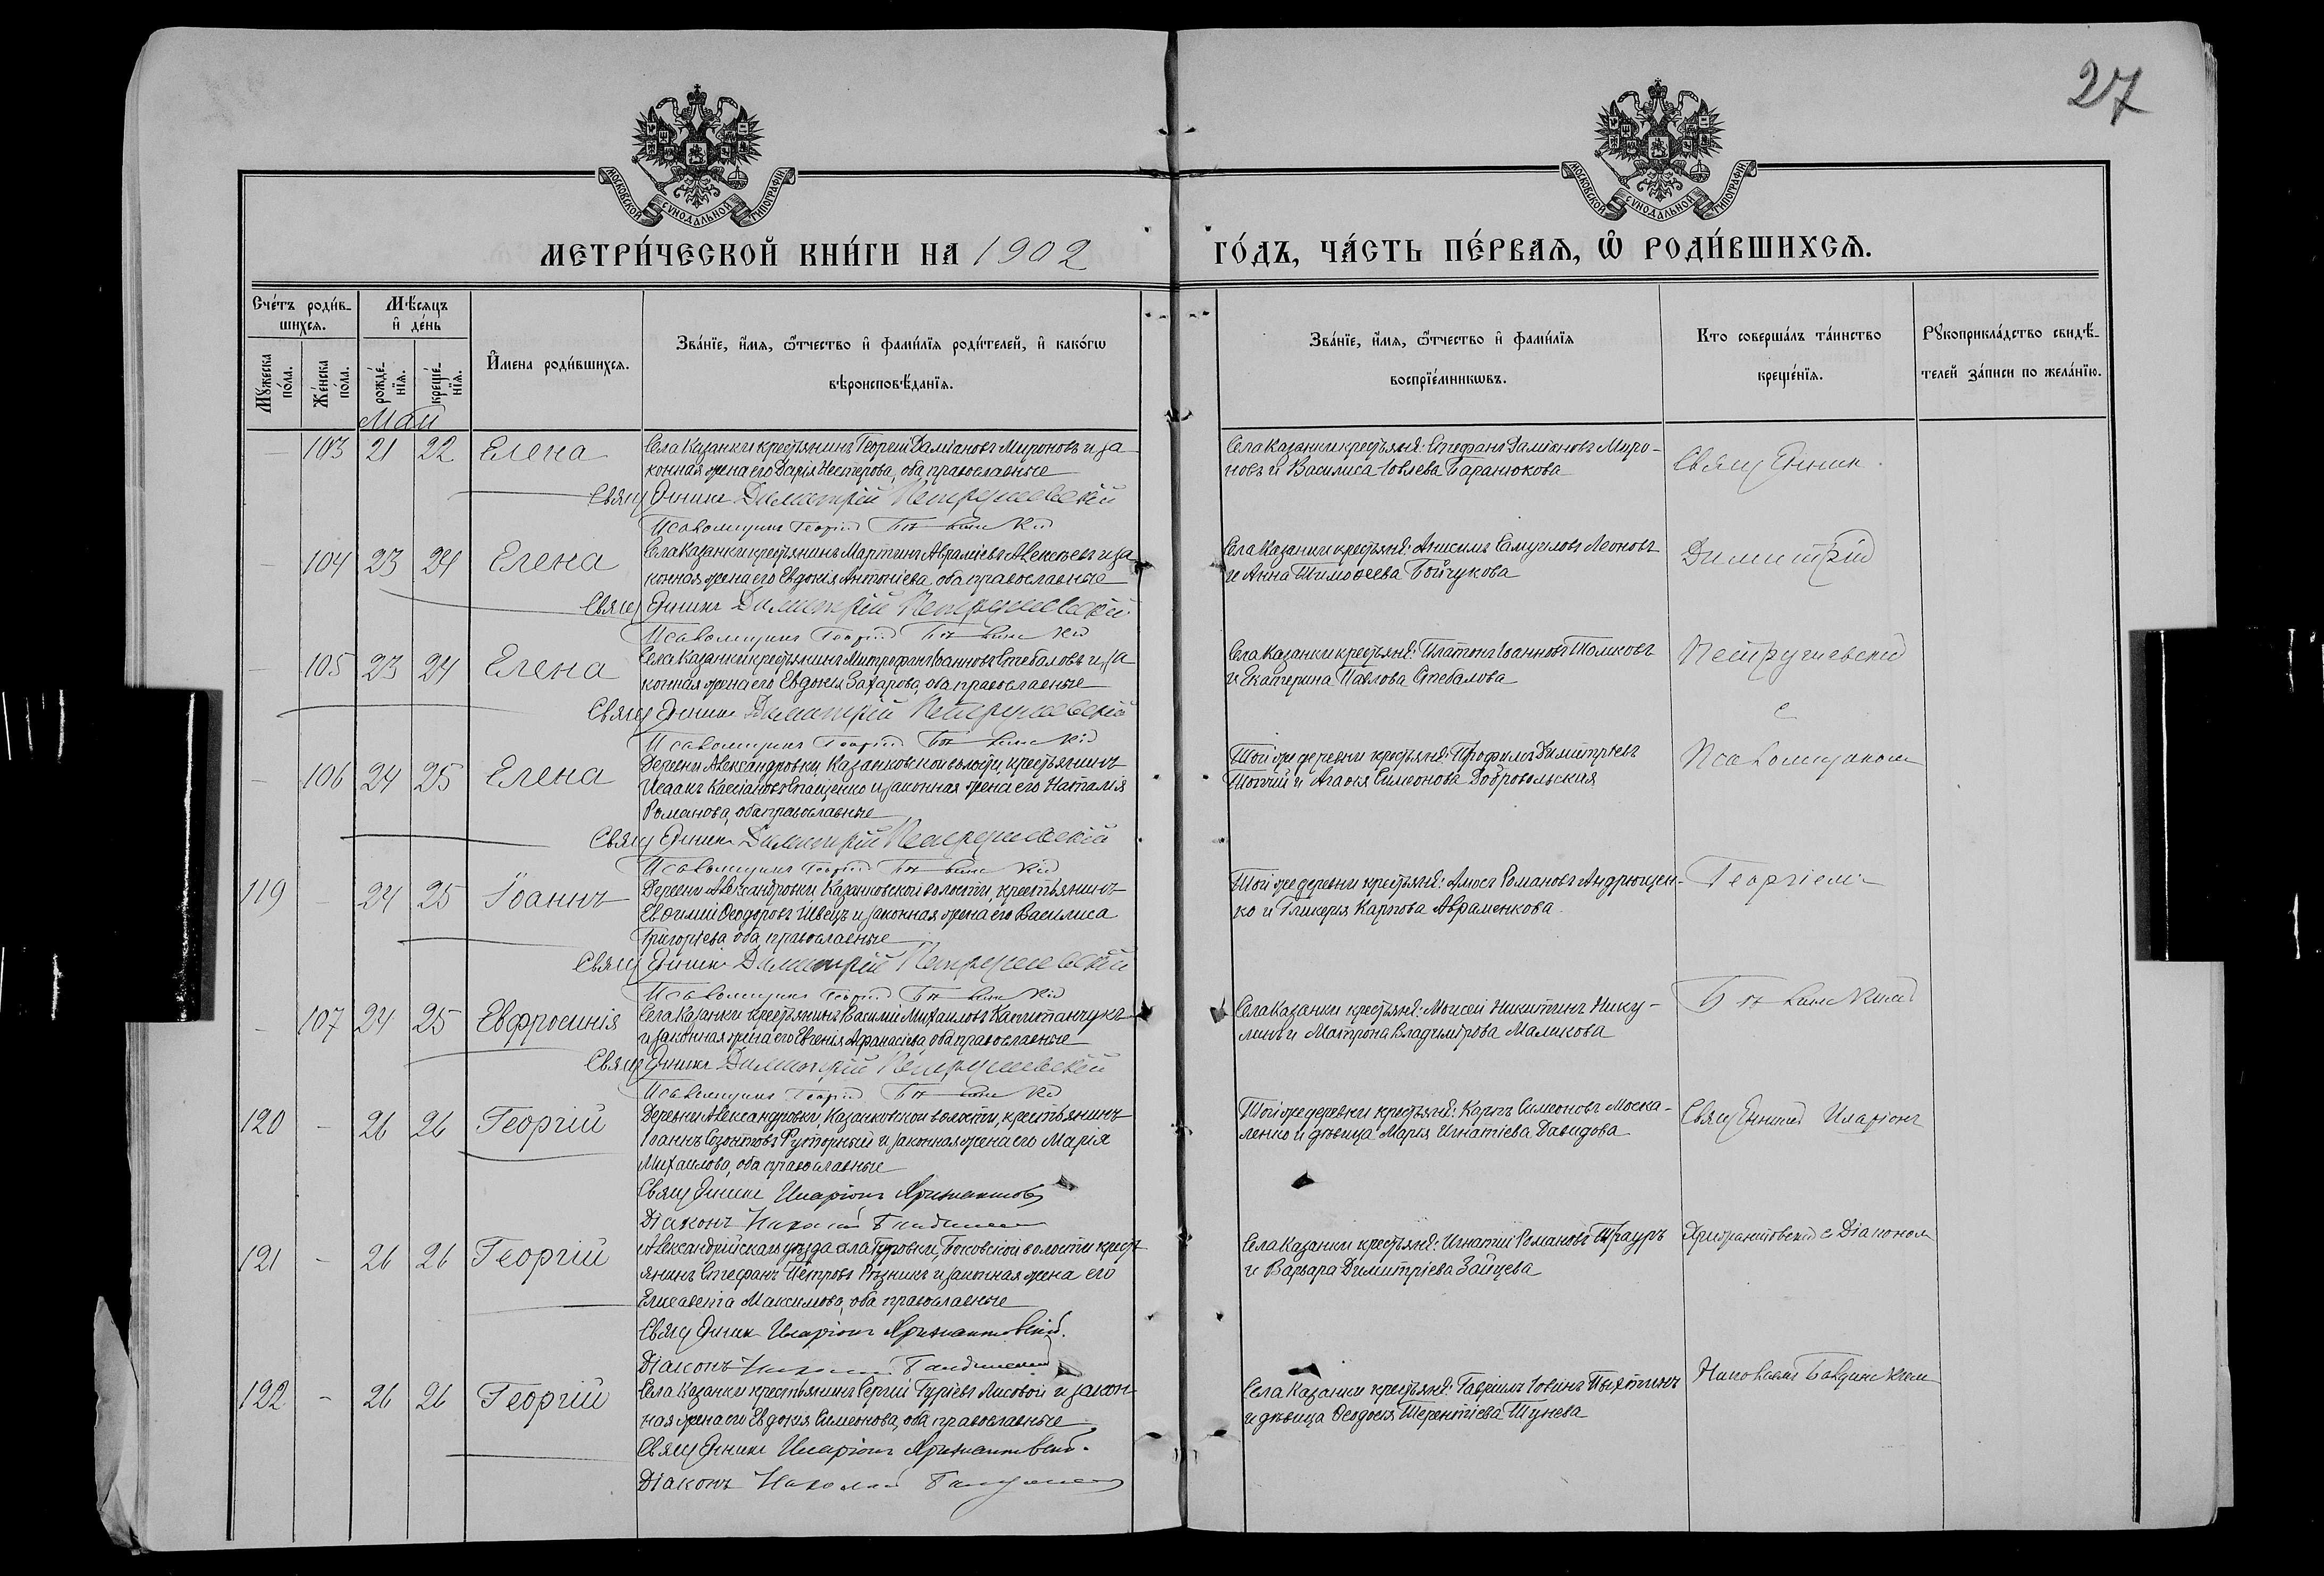 27
МОСКОВСКОЙ СУНОДАЛЬНОЙ ТИПОГРАФІИ
МОСКОВСКОЙ СУНОДАЛЬНОЙ ТИПОГРАФІИ
МЕТРИ́ЧЕСКОЙ КНИ́ГИ НА 1902
ГО́ДЪ, ЧА́СТЬ ПЕ́РВАѦ, Ѽ РОДИ́ВШИХСѦ.
Счéтъ роди́в-
шихсѧ.
Мѣ́сѧцъ
и҆ дéнь
Мꙋ́жеска
по́ла.
Же́нска
по́ла.
рожде́-
нїѧ.
креще́-
нїѧ.
И҆мена роди́вшихсѧ.
Зва́нїе, и҆́мѧ, ѻ҆́тчество и҆ фами́лїѧ роди́телей, и҆ како́гѡ
вѣроисповѣ́данїѧ.
Зва́нїе, и҆́мѧ, ѻ҆́тчество и҆ фами́лїѧ
воспрїе́мникѡвъ.
Кто соверша́лъ та́инство
креще́нїѧ.
Рꙋкоприкла́дство свидѣ́-
телей за́писи по жела́нїю.
Май
– 103 21 22 Елена
Села Казанки крестьянинъ Георгій Даміановъ Мироновъ и за-
конная жена его Дарія Нестерова, оба православные
Священникъ Димитрій Петрушевскій
Псаломщикъ Георгій
Села Казанки крестьяне: Стефанъ Даміановъ Миро-
новъ и Василиса Іовлева Баранюкова
Священник
– 104 23 24 Елена
Села Казанки крестьянинъ Мартинъ Авраміевъ Алексѣевъ и за-
конная жена его Евдокія Антоніева, оба православные
Священникъ Димитрій Петрушевскій
Псаломщикъ Георгій
Села Казанки крестьяне: Анисимъ Самуиловъ Леоновъ
и Анна Тимоѳеева Бойчукова
Димитрій
– 105 23 24 Елена
Села Казанки крестьянинъ Митрофанъ Іоанновъ Стебаловъ и за-
конная жена его Евдокія Захарова, оба православные
Священникъ Димитрій Петрушевскій
Псаломщикъ Георгій
Села Казанки крестьяне: Платонъ Іоанновъ Толмовъ
и Екатерина Павлова Стебалова
Петрушевскій
с
– 106 24 25 Елена
Деревни Александровки, Казанковской волости, крестьянинъ
Исаакъ Кассіановъ Спащенко и законная жена его Наталія
Романова, оба православные
Священникъ Димитрій Петрушевскій
Псаломщикъ Георгій
Той же деревни крестьяне: Трофимъ Димитріевъ
и Агафія Симеонова Добровольская
Псаломщикомъ
119 – 24 25 Іоаннъ
Деревни Александровки Казанковской волости, крестьянинъ
Евѳимій Ѳеодоровъ Швецъ и законная жена его Василиса
Григоріева оба православные
Священникъ Димитрій Петрушевскій
Псаломщикъ Георгій
Той же деревни крестьяне: Амосъ Романовъ Андрющен-
ко и Гликерія Карпова Авраменкова
Георгіемъ
– 107 24 25 Евфросинія
Села Казанки крестьянинъ Василій Михаиловъ Капитанчукъ
и законная жена его Евгенія Афанасіева оба православные
Священникъ Димитрій Петрушевскій
Псаломщикъ Георгій
Села Казанки крестьяне: Моисей Никитинъ Нику-
линъ и Матрона Владимірова Маликова
120 – 26 26 Георгій
Деревни Александровки, Казанковской волости, крестьянинъ
Іоаннъ Созонтовъ Руторный и законная жена его Марія
Михаилова, оба православные
Священникъ Иларіонъ
Діаконъ Николай
Той же деревни крестьяне: Карпъ Симеоновъ Моска-
ленко и дѣвица Марія Игнатіева Давидова
Священникъ Иларіонъ
121 – 26 26 Георгій
Александрійскаго уѣзда села Гуровки, Боковской волости крест-
янинъ Стефанъ Петровъ Рѣзникъ и законная жена его
Елисавета Максимова, оба православные
Священникъ Иларіонъ
Діаконъ
Села Казанки крестьяне: Игнатій Романовъ Трауръ
и Варвара Димитріева Зайцева
с Діакономъ
122 – 26 26 Георгій
Села Казанки крестьянинъ Сергій Гуріевъ Лисовой и закон-
ная жена его Евдокія Симеонова, оба православные
Священникъ Иларіонъ
Діаконъ Николай
Села Казанки крестьяне: Гавріилъ Іовинъ Пыхтинъ
и дѣвица Ѳеодосія Терентіева Тунева
Николаемъ